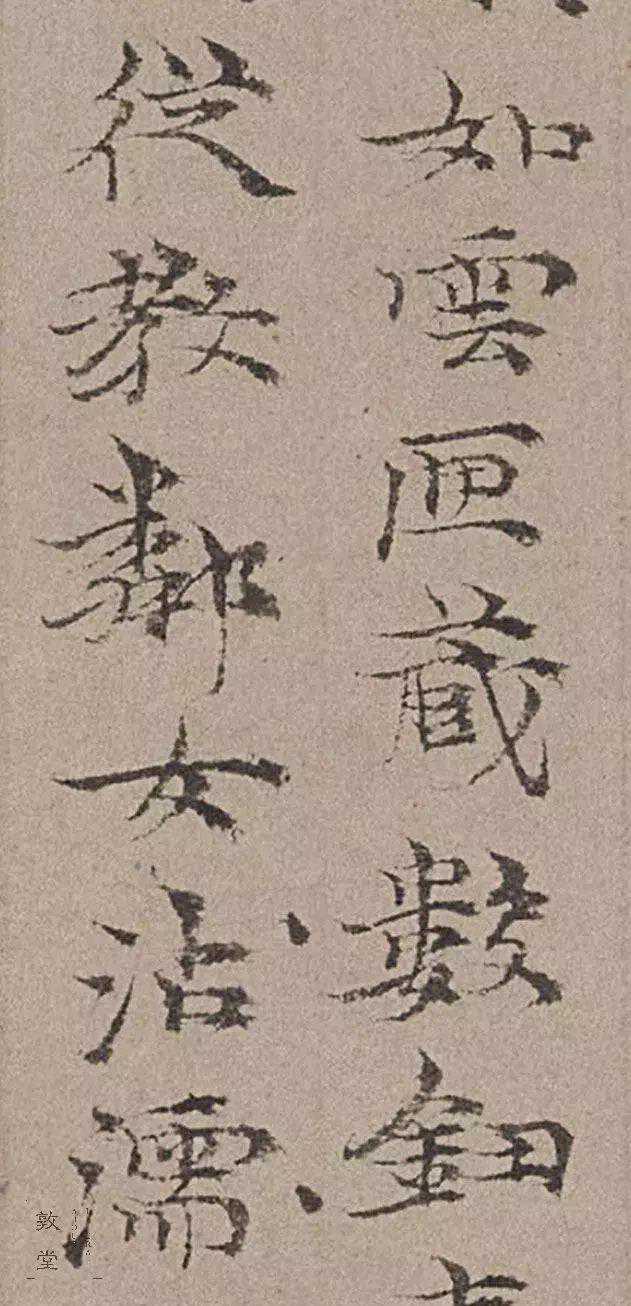 如雲匣藏數鈿
從教鄰女沾濡
敦堂